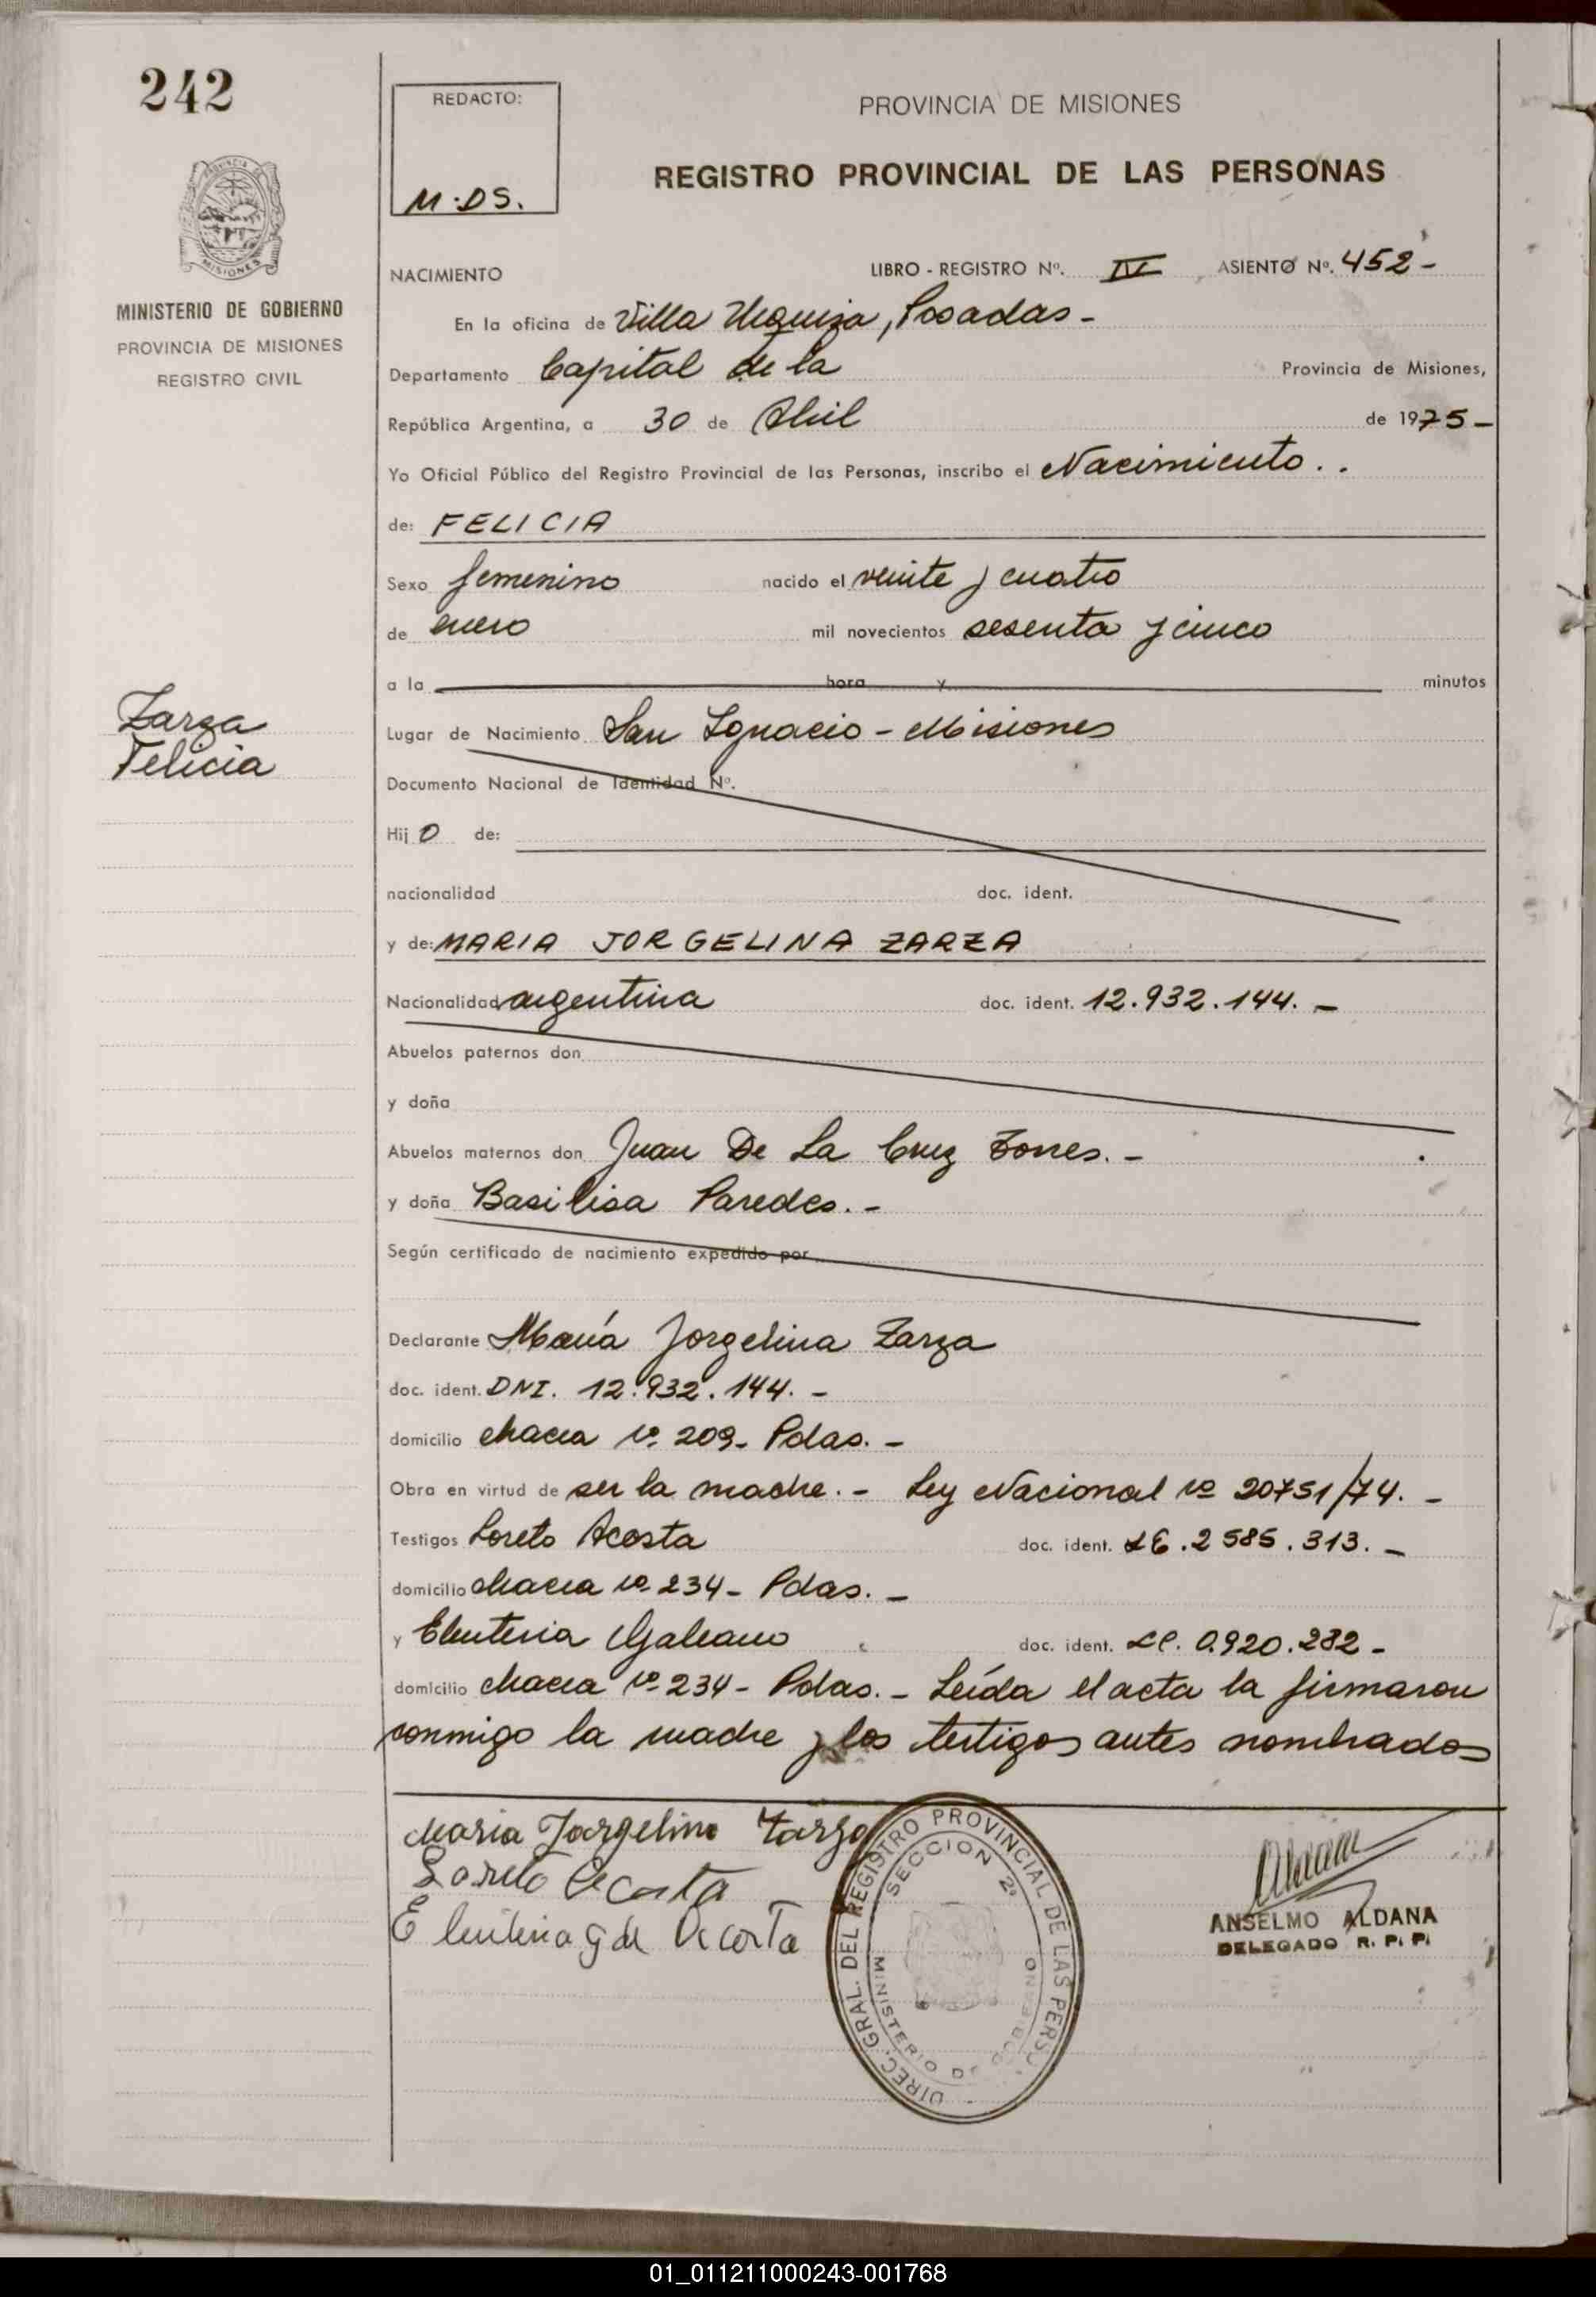 242
REDACTO:
M.DS.
PROVINCIA DE MISIONES
REGISTRO PROVINCIAL DE LAS PERSONAS
PROVINCIA
MISIONES
MINISTERIO DE GOBIERNO
PROVINCIA DE MISIONES
REGISTRO CIVIL
NACIMIENTO LIBRO - REGISTRO Nº. IV ASIENTO Nº. 452-
En la oficina de Villa Urquiza, Posadas-
Departamento Capital de la Provincia de Misiones,
República Argentina, a 30 de Abril de 1975-
Yo Oficial Público del Registro Provincial de las Personas, inscribo el Nacimiento..
de: FELICIA
Sexo femenino nacido el veinte y cuatro
de enero mil novecientos sesenta y cinco
a la hora y minutos
Zarza
Felicia
Lugar de Nacimiento San Ignacio - Misiones
Documento Nacional de Identidad Nº.
Hij O de:
nacionalidad doc. ident.
y de: MARIA JORGELINA ZARZA
Nacionalidad argentina doc. ident. 12.932.144.-
Abuelos paternos don
y doña
Abuelos maternos don Juan De La Cruz Torres.-
y doña Basilisa Paredes.-
Según certificado de nacimiento expedido por
Declarante María Jorgelina Zarza
doc. ident. DNI. 12.932.144.-
domicilio chacra nº 209- Pdas.-
Obra en virtud de ser la madre.- Ley Nacional nº 20751/74.-
Testigos Loreto Acosta doc. ident. LE.2585.313.-
domicilio chacra nº 234- Pdas.-
y Eleuteria Galeano doc. ident. LC. 0.920.282-
domicilio chacra nº 234- Pdas.- Leída el acta la firmaron
conmigo la madre y los testigos antes nombrados
Maria Jorgelina Zarza
Loreto Acosta
Eleuteria G de Acosta
DIREC. GRAL. DEL REGISTRO PROVINCIAL DE LAS PERSO
SECCION 2ª
MINISTERIO DE GOBIERNO
ANSELMO ALDANA
DELEGADO R. P. P.
01_011211000243-001768